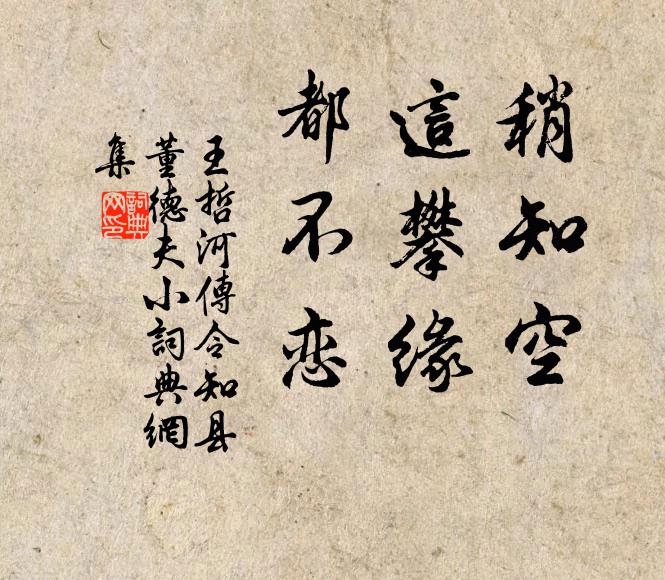 稍知空
這攀緣
都不恋
王哲河傳令知县
董德夫小詞典網
集
詞典网印